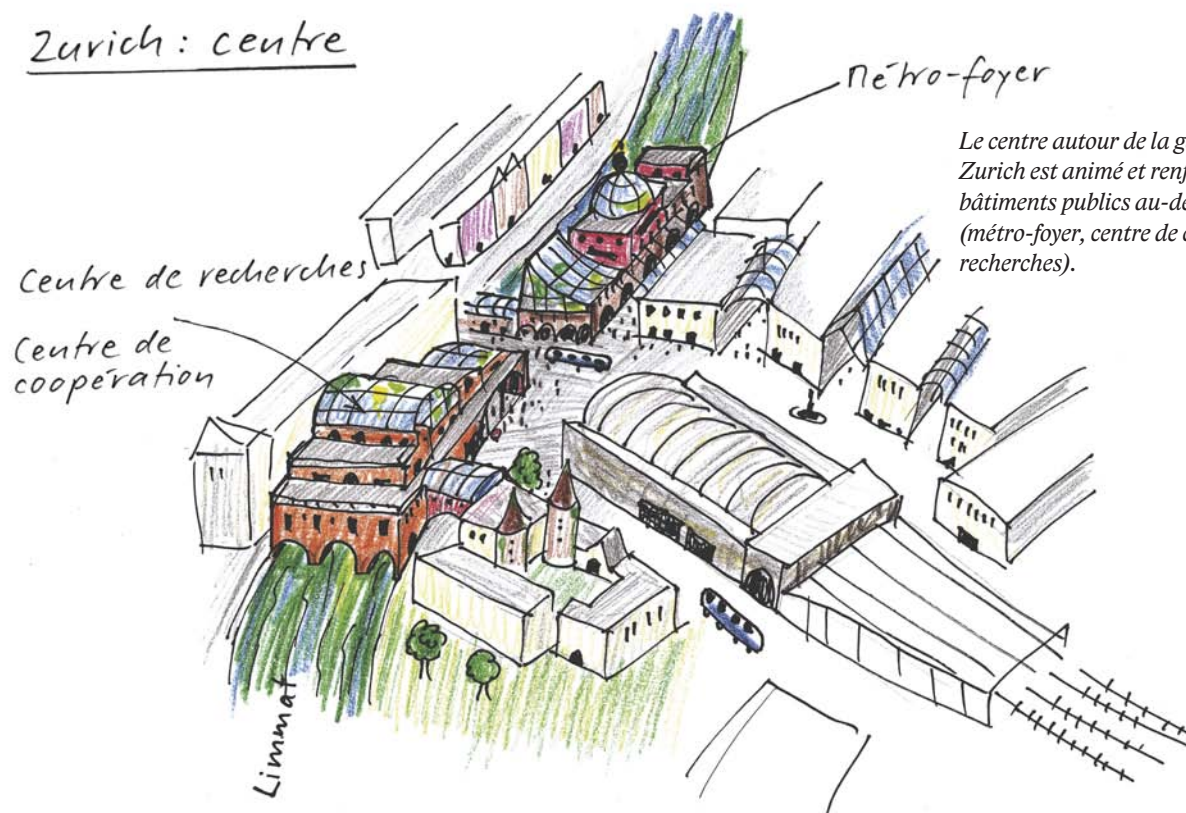 Zurich : centre
Métro-foyer
Le centre autour de la g
Zurich est animé et renf
bâtiments publics au-de
(métro-foyer, centre de c
recherches).
Centre de recherches
Centre de
coopération
Limmat